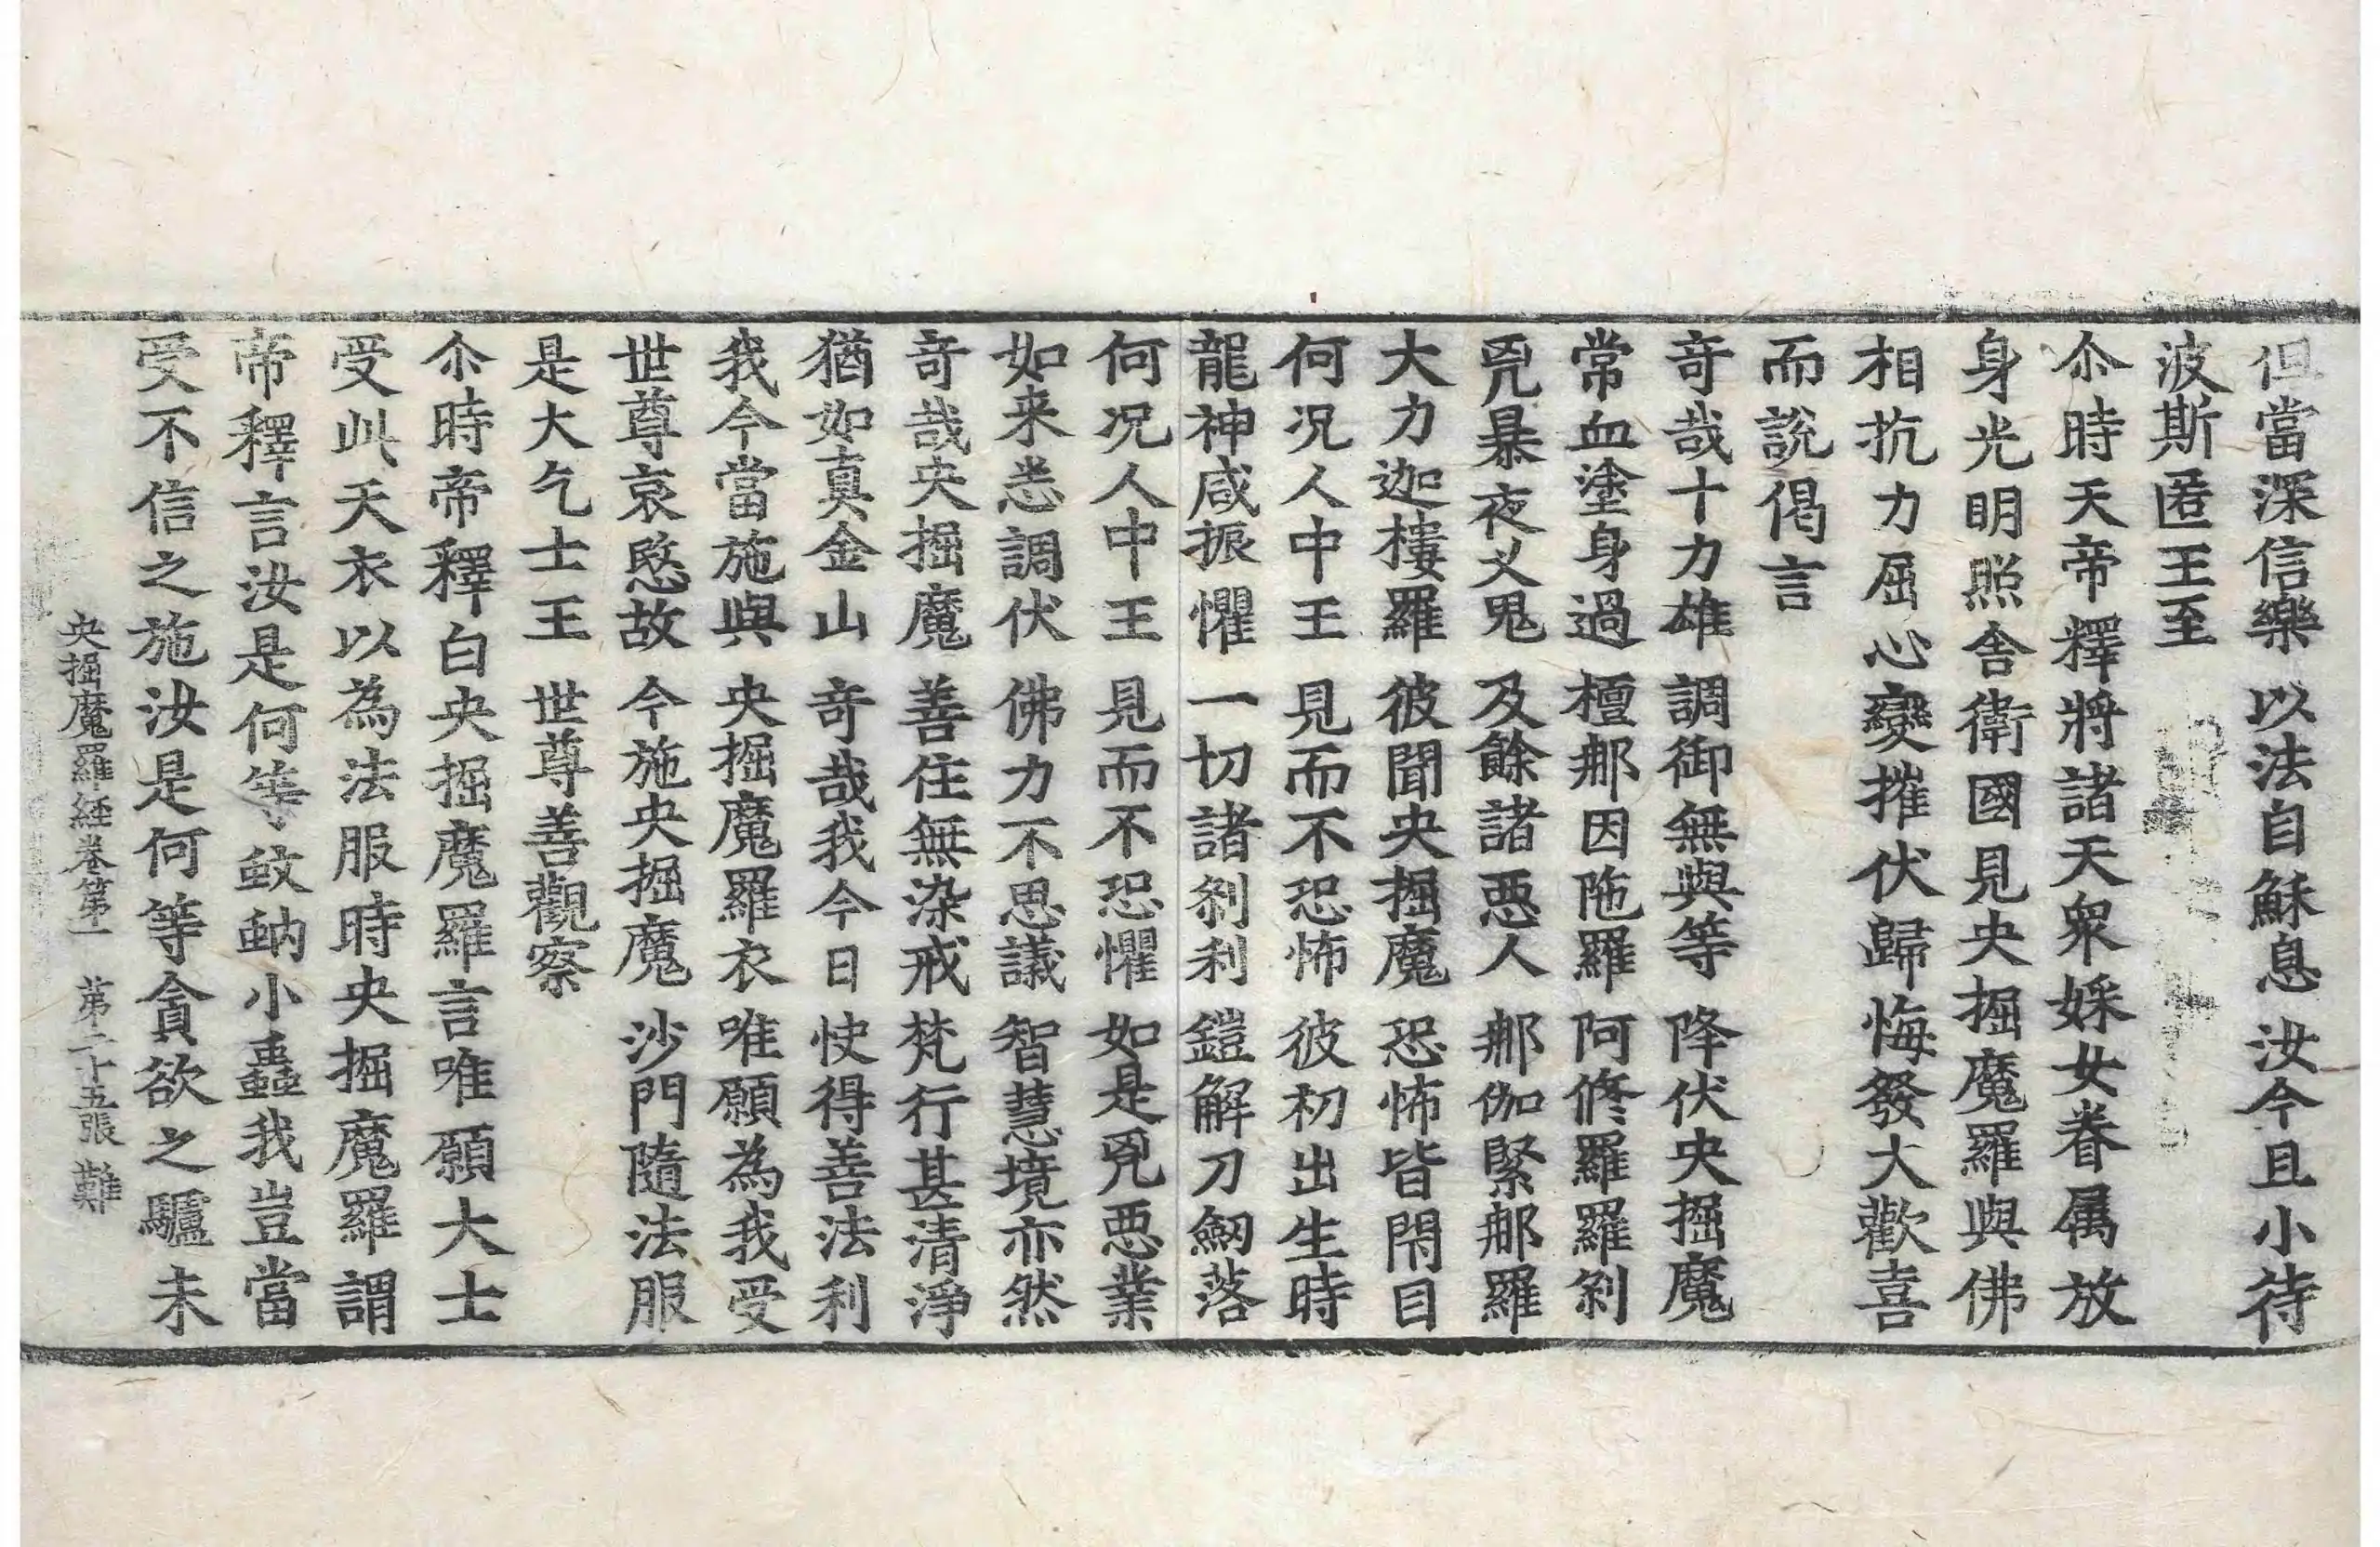 但當深信樂　以法自穌息　汝今且小待
波斯匿王至
尒時天帝釋將諸天衆婇女眷属放
身光明照舎衛國見央掘魔羅與佛
相抗力屈心變摧伏歸悔發大歡喜
而說偈言
竒哉十力雄　調御無與等　降伏央掘魔
常血塗身過　檀那因陁羅　阿修羅羅刹
兇暴夜叉鬼　及餘諸惡人　那伽緊那羅
大力迦樓羅　彼聞央掘魔　恐怖皆閇目
何况人中王　見而不恐怖　彼初出生時
龍神咸振懼　一切諸刹利　鎧解刀劒落
何况人中王　見而不恐懼　如是兇惡業
如来悉調伏　佛力不思議　智慧境亦然
竒哉央掘魔　善住無染戒　梵行甚清淨
猶如真金山　竒哉我今日　快得善法利
我今當施與　央掘魔羅衣　唯願為我受
世尊哀愍故　今施央掘魔　沙門隨法服
是大乞士王　世尊善觀察
尒時帝釋白央掘魔羅言唯願大士
受此天衣以為法服時央掘魔羅謂
帝釋言汝是何等蚊蚋小蟲我豈當
受不信之施汝是何等貪欲之驢未
央掘魔羅経卷第一　第二十五張　難